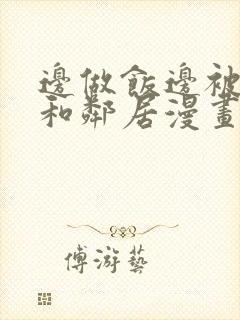 邊做飯邊被
和鄰居漫畫
傅游藝